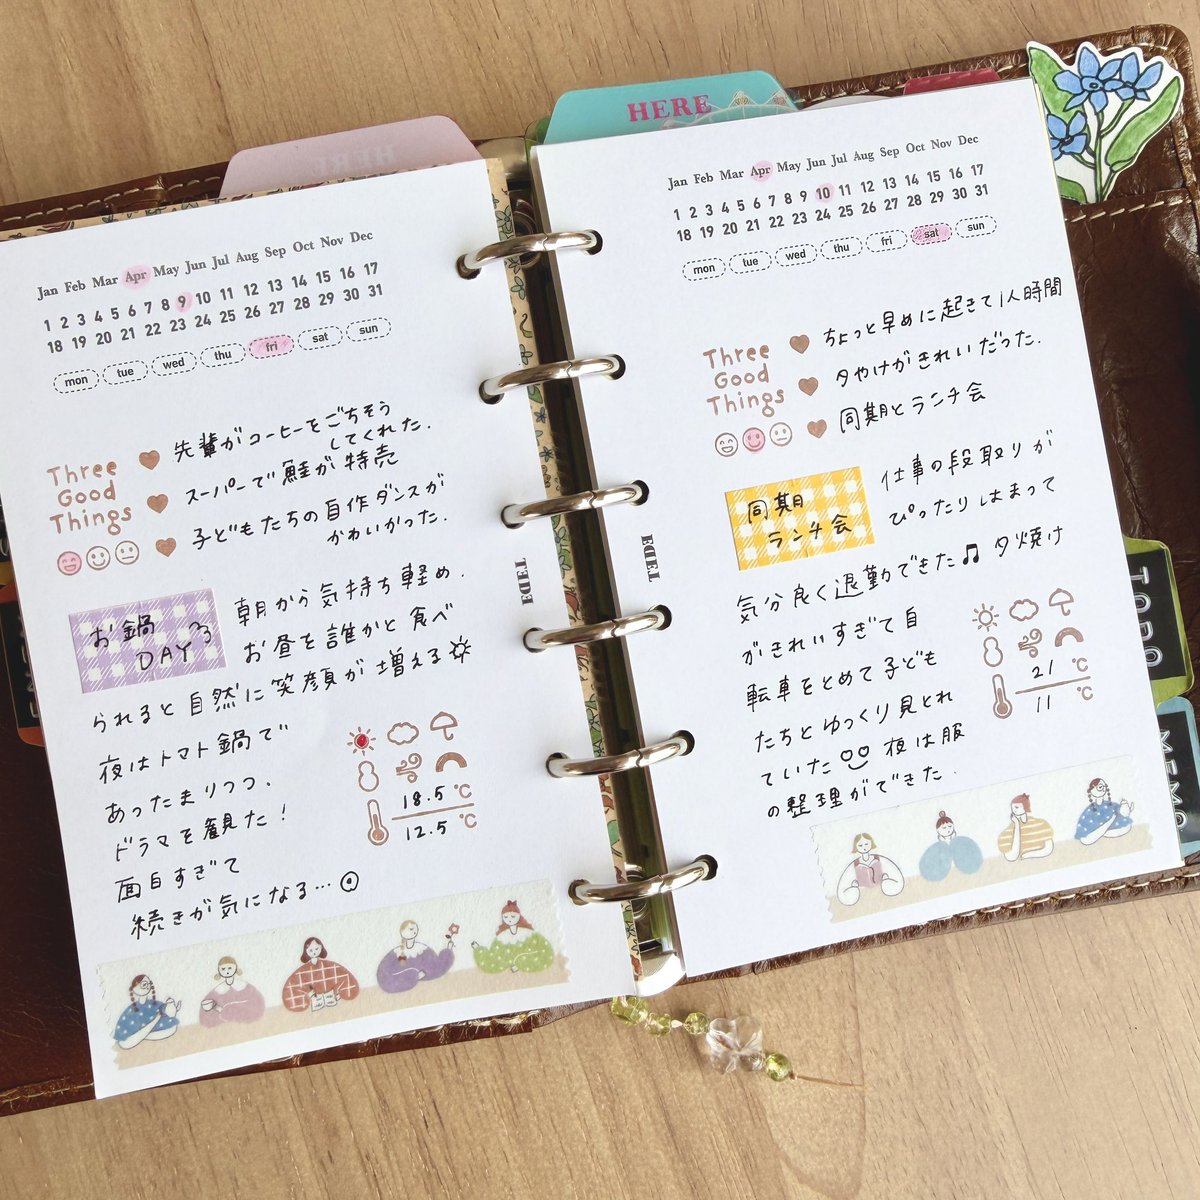 HERE
Jan Feb Mar Apr May Jun Jul Aug Sep Oct Nov Dec
1 2 3 4 5 6 7 8 9 10 11 12 13 14 15 16 17
18 19 20 21 22 23 24 25 26 27 28 29 30 31
mon tue wed thu fri sat sun
Three
Good
Things
先輩がコーヒーをごちそう
してくれた.
スーパーで鮭が特売
子どもたちの自作ダンスが
かわいかった.
お鍋
DAY
朝から気持ち軽め.
お昼を誰かと食べ
られると自然に笑顔が増える
夜はトマト鍋で
あったまりつつ、
ドラマを観た!
面白すぎて
続きが気になる…
18.5 ℃
12.5 ℃
EDiT
HERE
Jan Feb Mar Apr May Jun Jul Aug Sep Oct Nov Dec
1 2 3 4 5 6 7 8 9 10 11 12 13 14 15 16 17
18 19 20 21 22 23 24 25 26 27 28 29 30 31
mon tue wed thu fri sat sun
Three
Good
Things
ちょっと早めに起きて1人時間
夕やけがきれいだった.
同期とランチ会
同期
ランチ会
仕事の段取りが
ぴったりはまって
気分良く退勤できた♫ 夕焼け
がきれいすぎて自
転車をとめて子ども
たちとゆっくり見とれ
ていた 夜は服
の整理ができた.
21 ℃
11 ℃
EDiT
TODO
MEMO